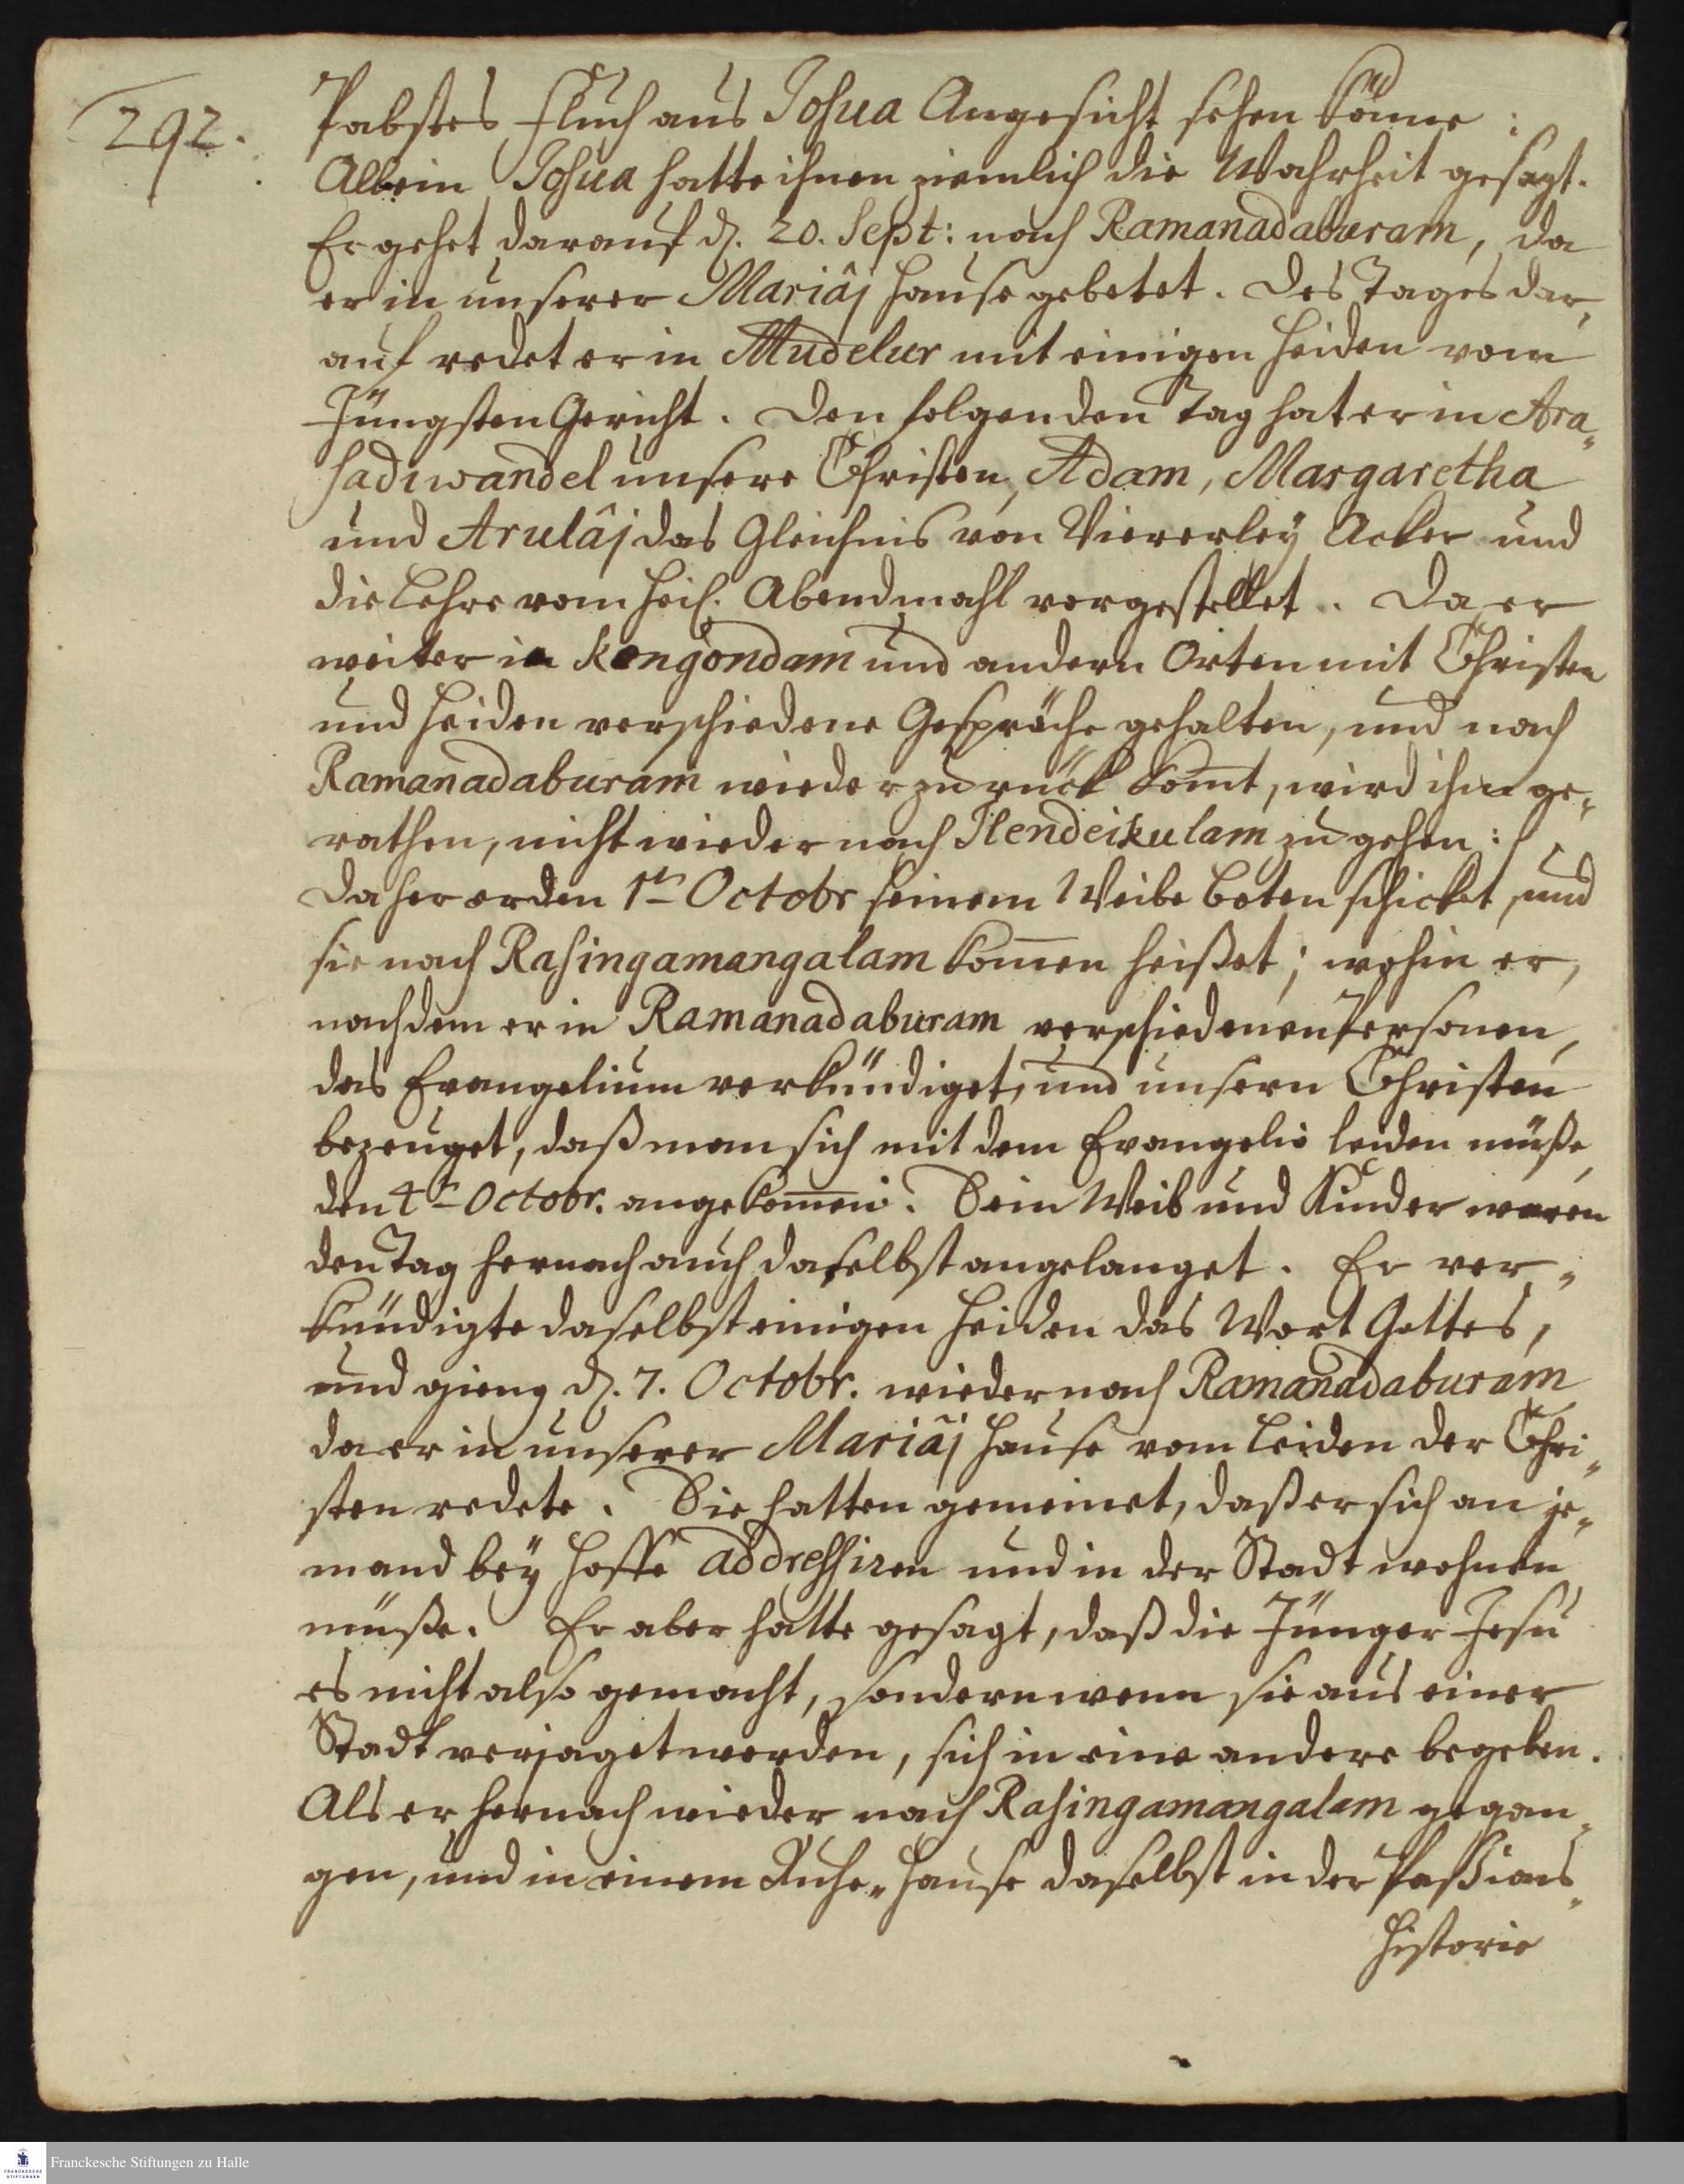 292.
Pabstes Fluch aus Josua Angesicht sehen könne:
Allein Josua hatte ihnen ziemlich die Wahrheit gesagt.
Er gehet darauf d. 20. Sept: nach Ramanadaburam, da
er in unserer Mariâj Hause gebetet. Des Tages dar„
auf redet er in Mudelur mit einigen Heiden vom
Jüngsten Gericht. Den folgenden Tag hat er in Ara„
sadiwandel unsere Christen, Adam, Margaretha
und Arulâj das Gleichnis von Viererley Acker und
die Lehre vom Heil. Abendmahl vorgestellet. Da er
weiter in Kongondam und andern Orten mit Christen
und Heiden verschiedene Gespräche gehalten, und nach
Ramanadaburam wieder zurück komt, wird ihm ge„
rathen, nicht wieder nach Ilendeikulam zu gehen:
Daher er den 1tn Octobr seinem Weibe Boten schicket, und
sie nach Rasingamangalam komen heißet; wohin er,
nachdem er in Ramanadaburam verschiedenen Personen,
das Evangelium verkündiget, und unsern Christen
bezeuget, daß man sich mit dem Evangelio leiden müße,
den 4tn Octobr. angekomen. Sein Weib und Kinder waren
den Tag hernach auch daselbst angelanget. Er ver„
kündigte daselbst einigen Heiden das Wort Gottes,
und gieng d. 7. Octobr. wieder nach Ramanadaburam
da er in unserer Mariâj Hause vom Leiden der Chri„
sten redete. Sie hatten gemeinet, daß er sich an je„
mand bey Hoffe addressiren und in der Stadt wohnen
müße. Er aber hatte gesagt, daß die Jünger Jesu
es nicht also gemacht, sondern wenn sie aus einer
Stadt verjaget worden, sich in eine andere begeben.
Als er hernach wieder nach Rasingamangalam gegan„
gen, und in einem Ruhe„Hause daselbst in der Paßions„
Historie
Franckesche Stiftungen zu Halle